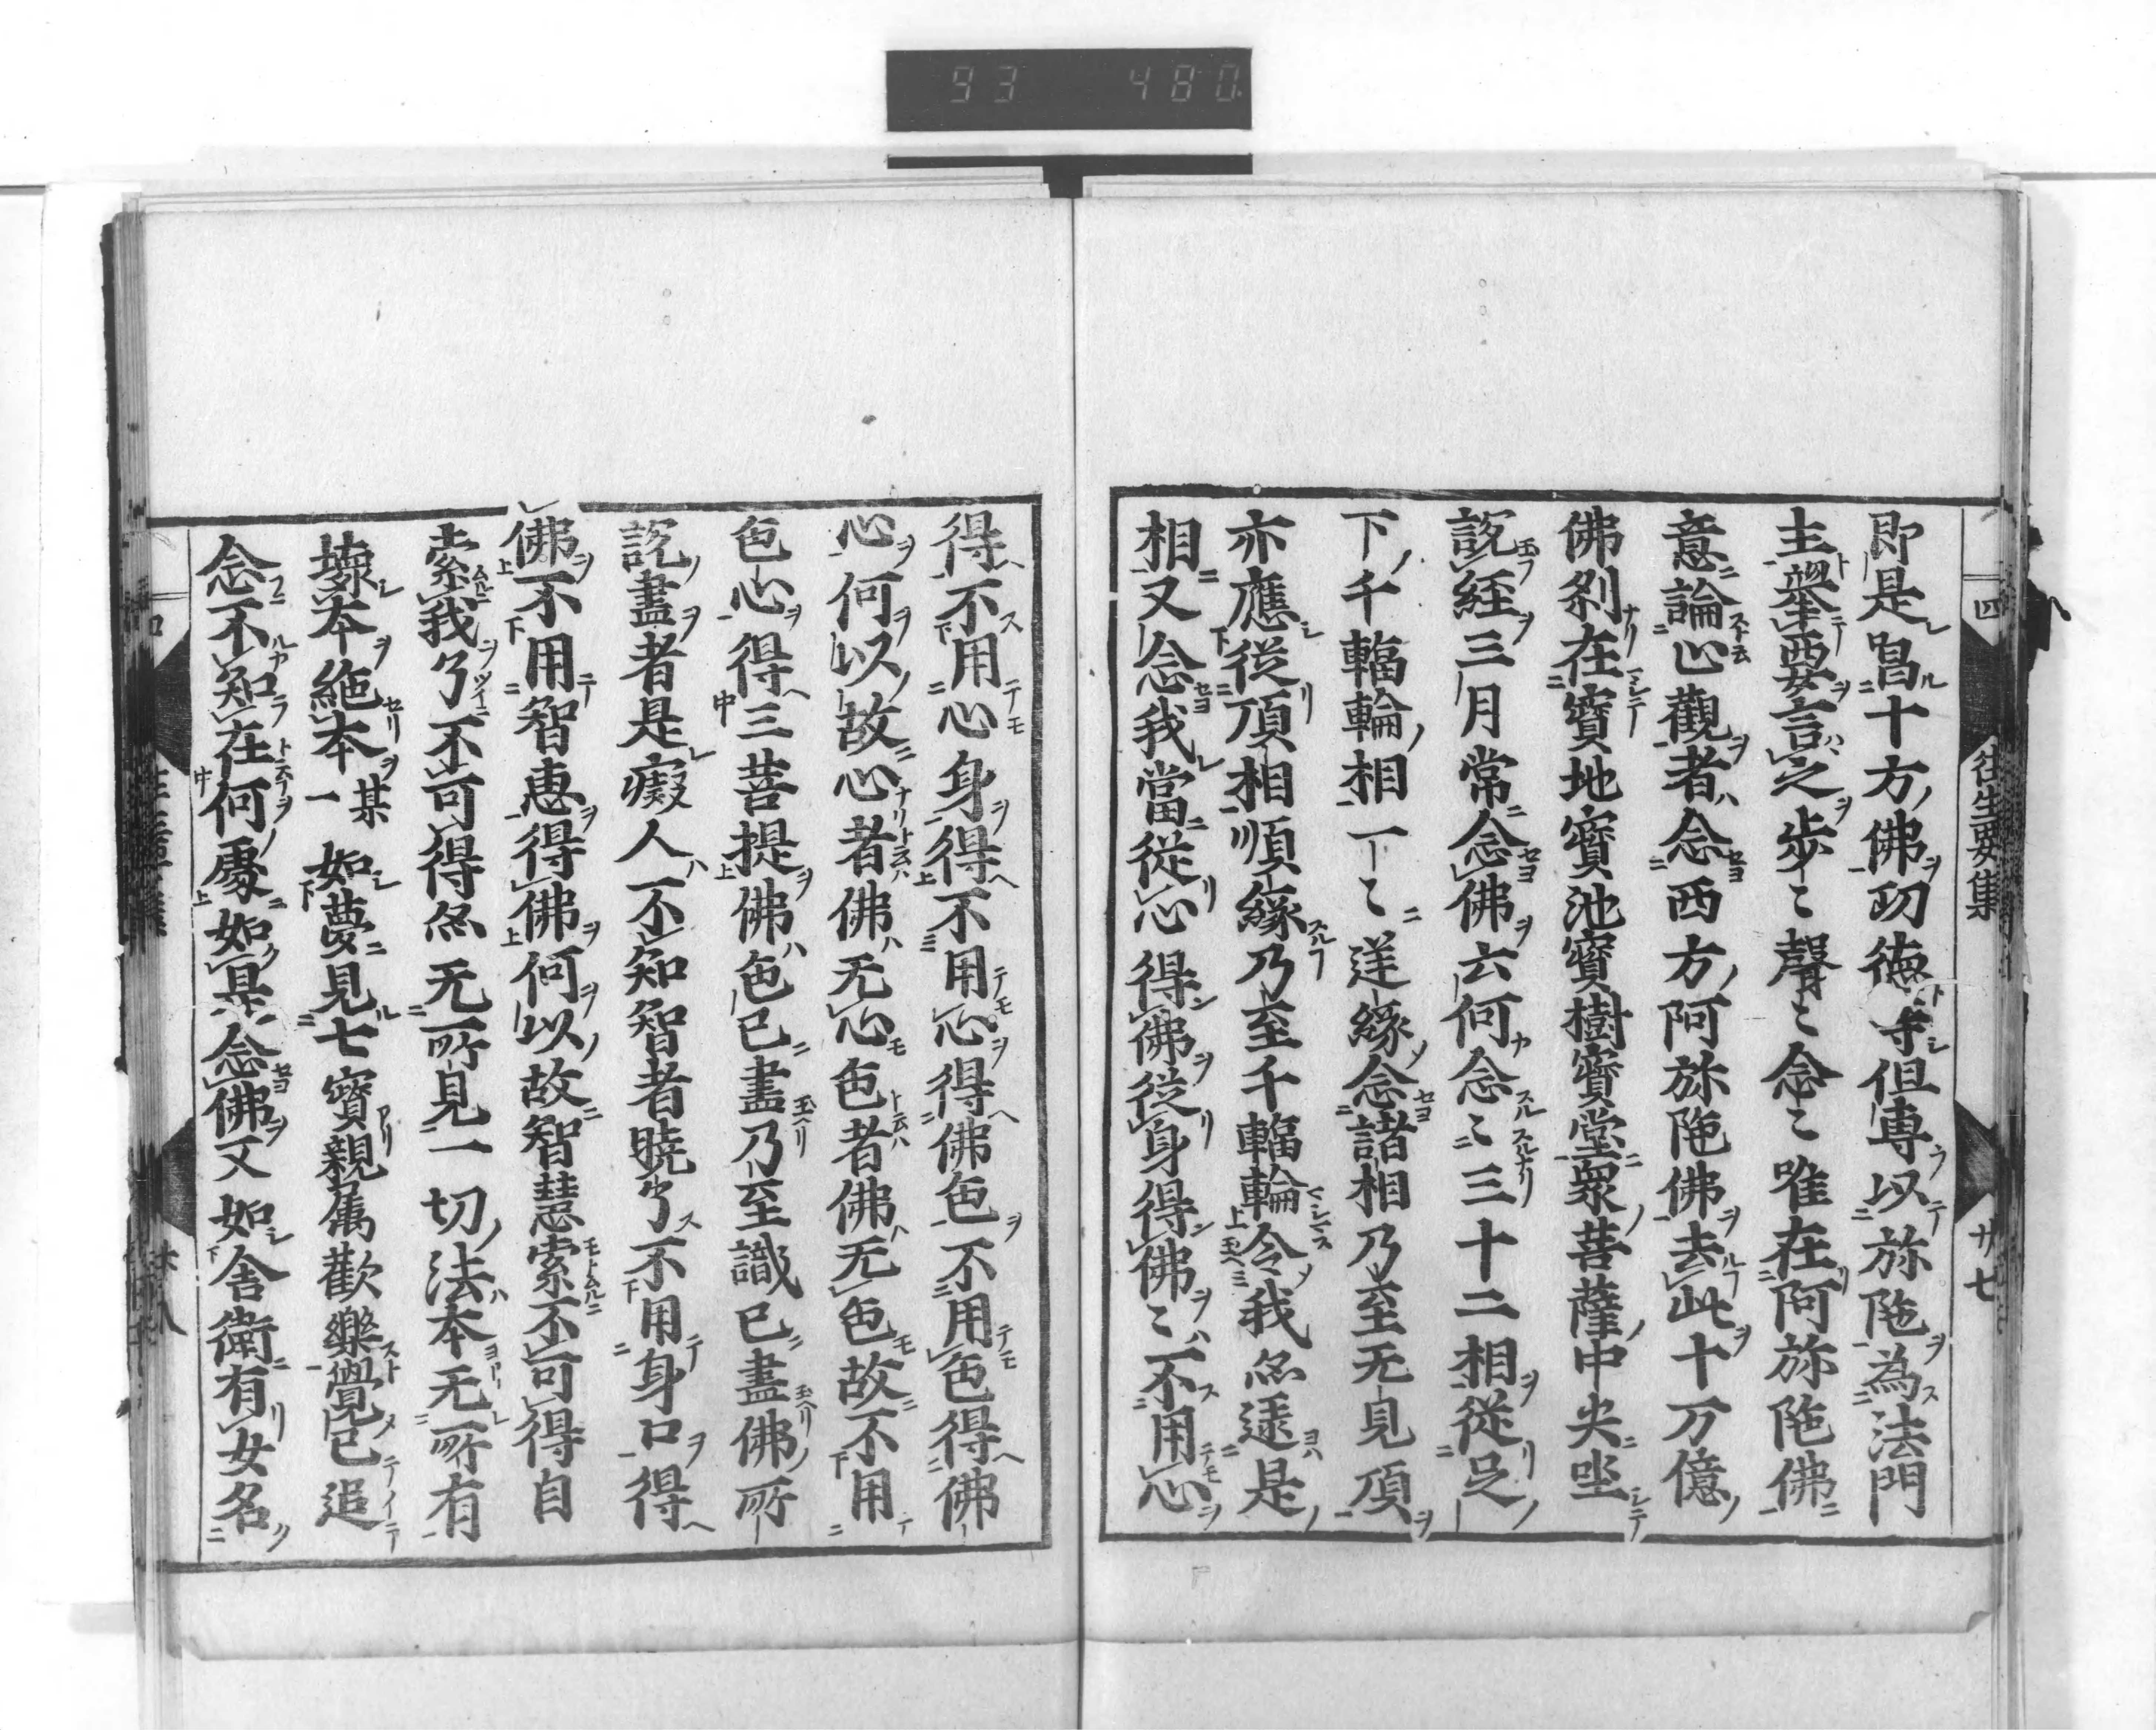 93 480
四 往生要集 廿七
即是唱十方佛功德等但專以弥陁為法門
主舉要言之歩〻聲〻念〻唯在阿弥陁佛
意論止觀者念西方阿弥陁佛去此十万億
佛刹在寶地寶池寶樹寶堂衆菩薩中央坐
說經三月常念佛云何念〻三十二相從足
下千輻輪相一〻逆緣念諸相乃至无見頂
亦應從頂相順緣乃至千輻輪令我亦逮是
相又念我當從心得佛從身得佛〻不用心
得不用心身得不用心得佛色不用色得佛
心何以故心者佛无心色者佛无色故不用
色心得三菩提佛色已盡乃至識已盡佛所
說盡者是癡人不知智者曉了不用身口得
佛不用智恵得佛何以故智慧索不可得自
索我了不可得亦无所見一切法本无所有
壞本絶本一某 如夢見七寶親属歡樂覺已追
念不知在何處如是念佛又如舎衛有女名